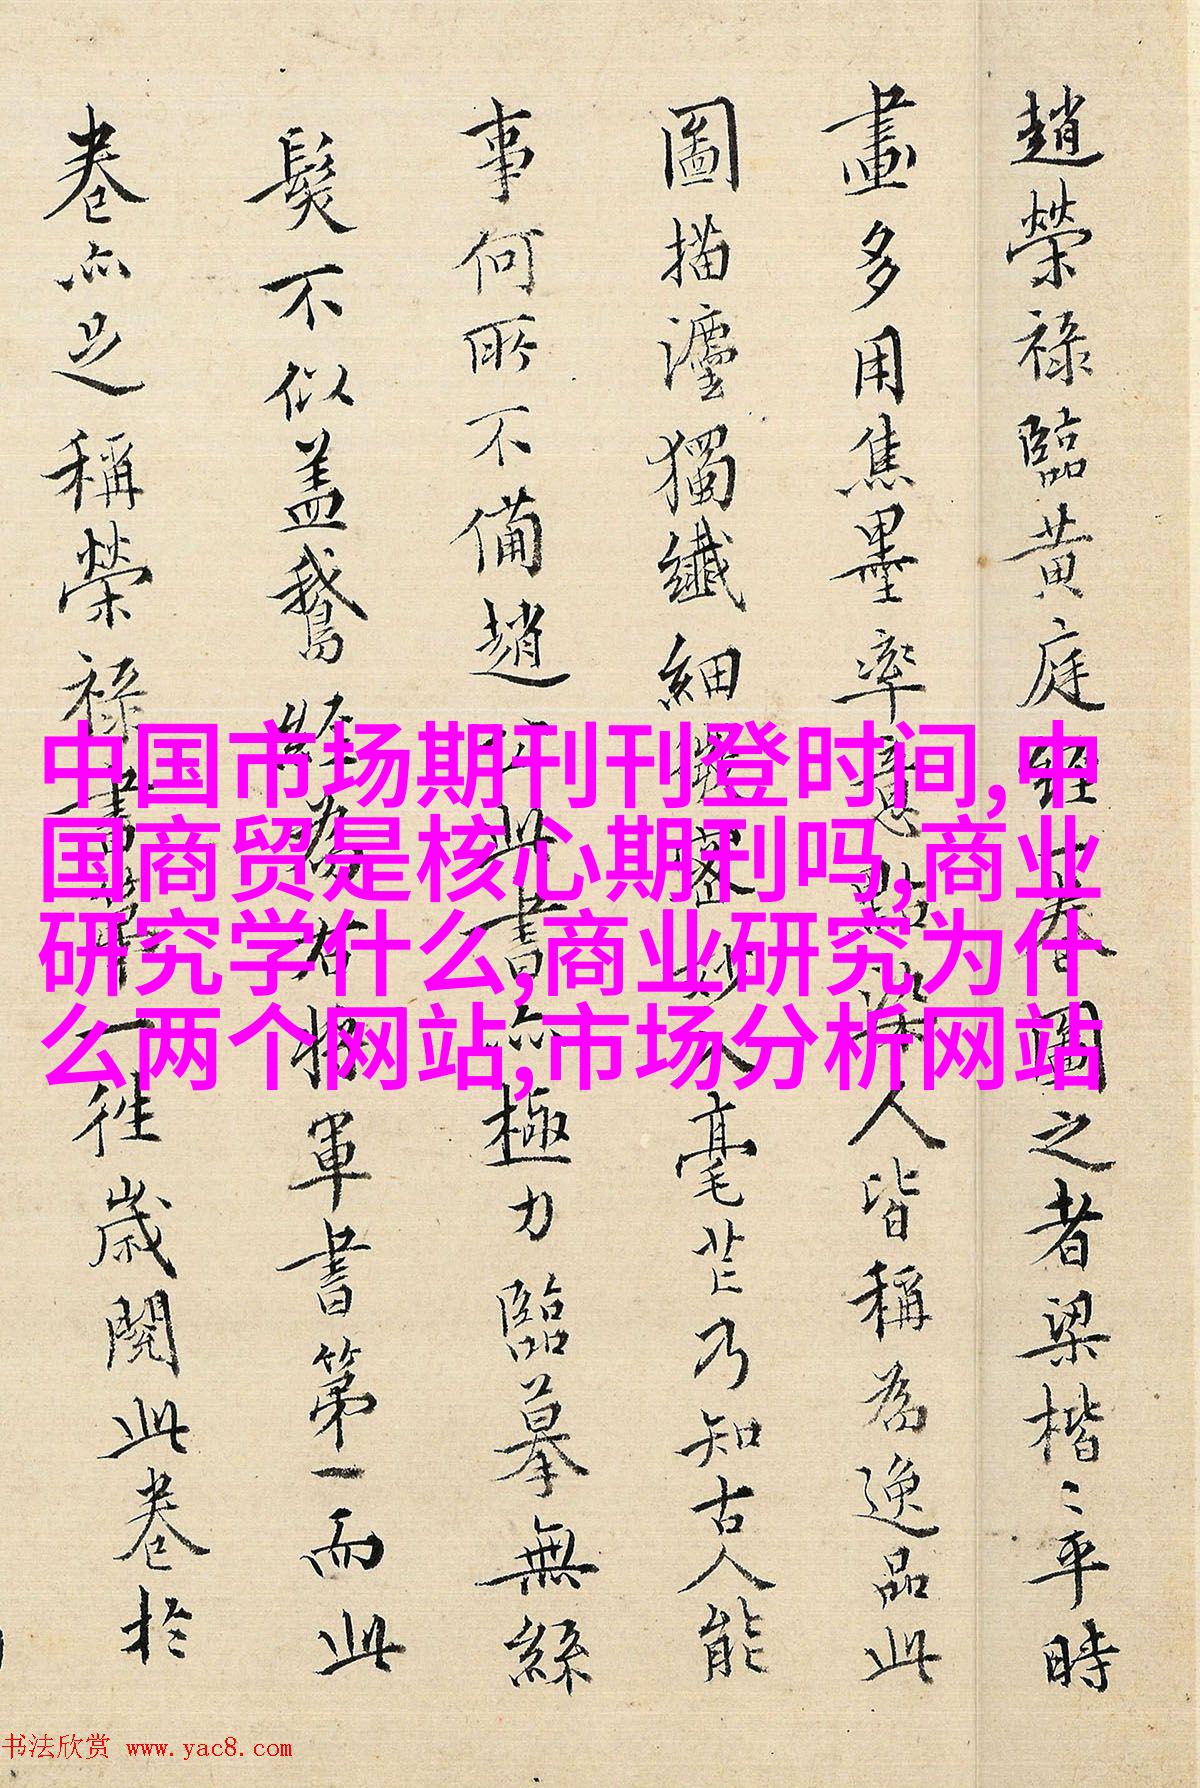 趙榮祿臨黄庭經卷圖之者梁楷〻平時
畫多用焦墨率意點染人皆稱為逸品此
圖描瀍獨纖細縝密妙入毫芒乃知古人能
事何所不備趙公此書亦極力臨摹無絲
髮不似盖鵞群為右將軍書第一而此
卷亦足稱榮祿書第一往歲閱此卷於
中国市场期刊刊登时间,中
国商贸是核心期刊吗,商业
研究学什么,商业研究为什
么两个网站,市场分析网站
书法欣赏 www.yac8.com